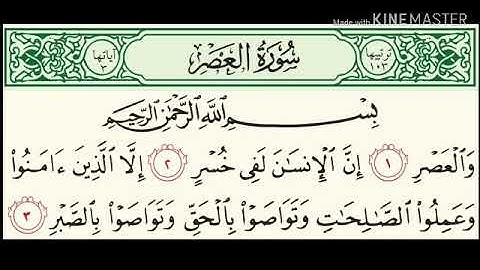 Made with KINEMASTER
ترتيبها ١٠٣ سُورَةُ العَصْرِ آياتها ٣
بِسْمِ ٱللَّهِ ٱلرَّحْمَٰنِ ٱلرَّحِيمِ
وَٱلْعَصْرِ ١ إِنَّ ٱلْإِنسَٰنَ لَفِى خُسْرٍ ٢ إِلَّا ٱلَّذِينَ ءَامَنُوا۟
وَعَمِلُوا۟ ٱلصَّٰلِحَٰتِ وَتَوَاصَوْا۟ بِٱلْحَقِّ وَتَوَاصَوْا۟ بِٱلصَّبْرِ ٣